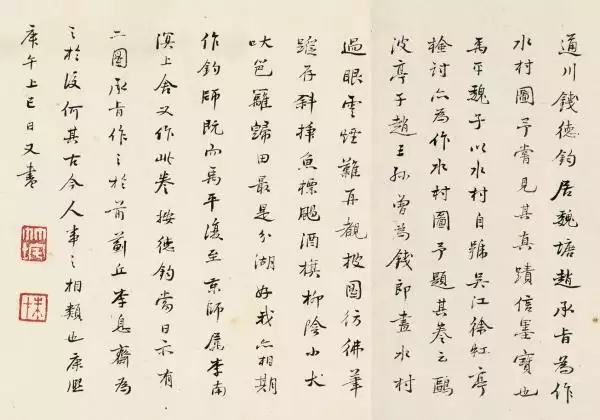 通川錢德鈞居魏塘趙承旨為作
水村圖予嘗見其真蹟信墨寶也
禹平魏子以水村自號吳江徐虹亭
檢討亦為作水村圖予題其卷云鷗
波亭子趙王孫曾為錢郎畫水村
過眼雲煙難再覩披圖彷彿筆
蹤存斜插魚標颭酒旗柳陰小犬
吠笆籬歸田最是分湖好我亦相期
作釣師既而禹平復至京師屬李南
溟上舍又作此卷按德鈞當日亦有
二圖承旨作之於前薊丘李息齋為
之於後何其古今人事之相類也康熙
庚午上巳日又書